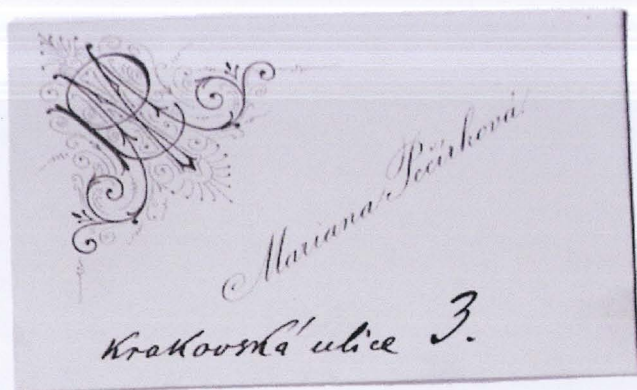 MP
Mariana Pečírková
Krakovská ulice 3.